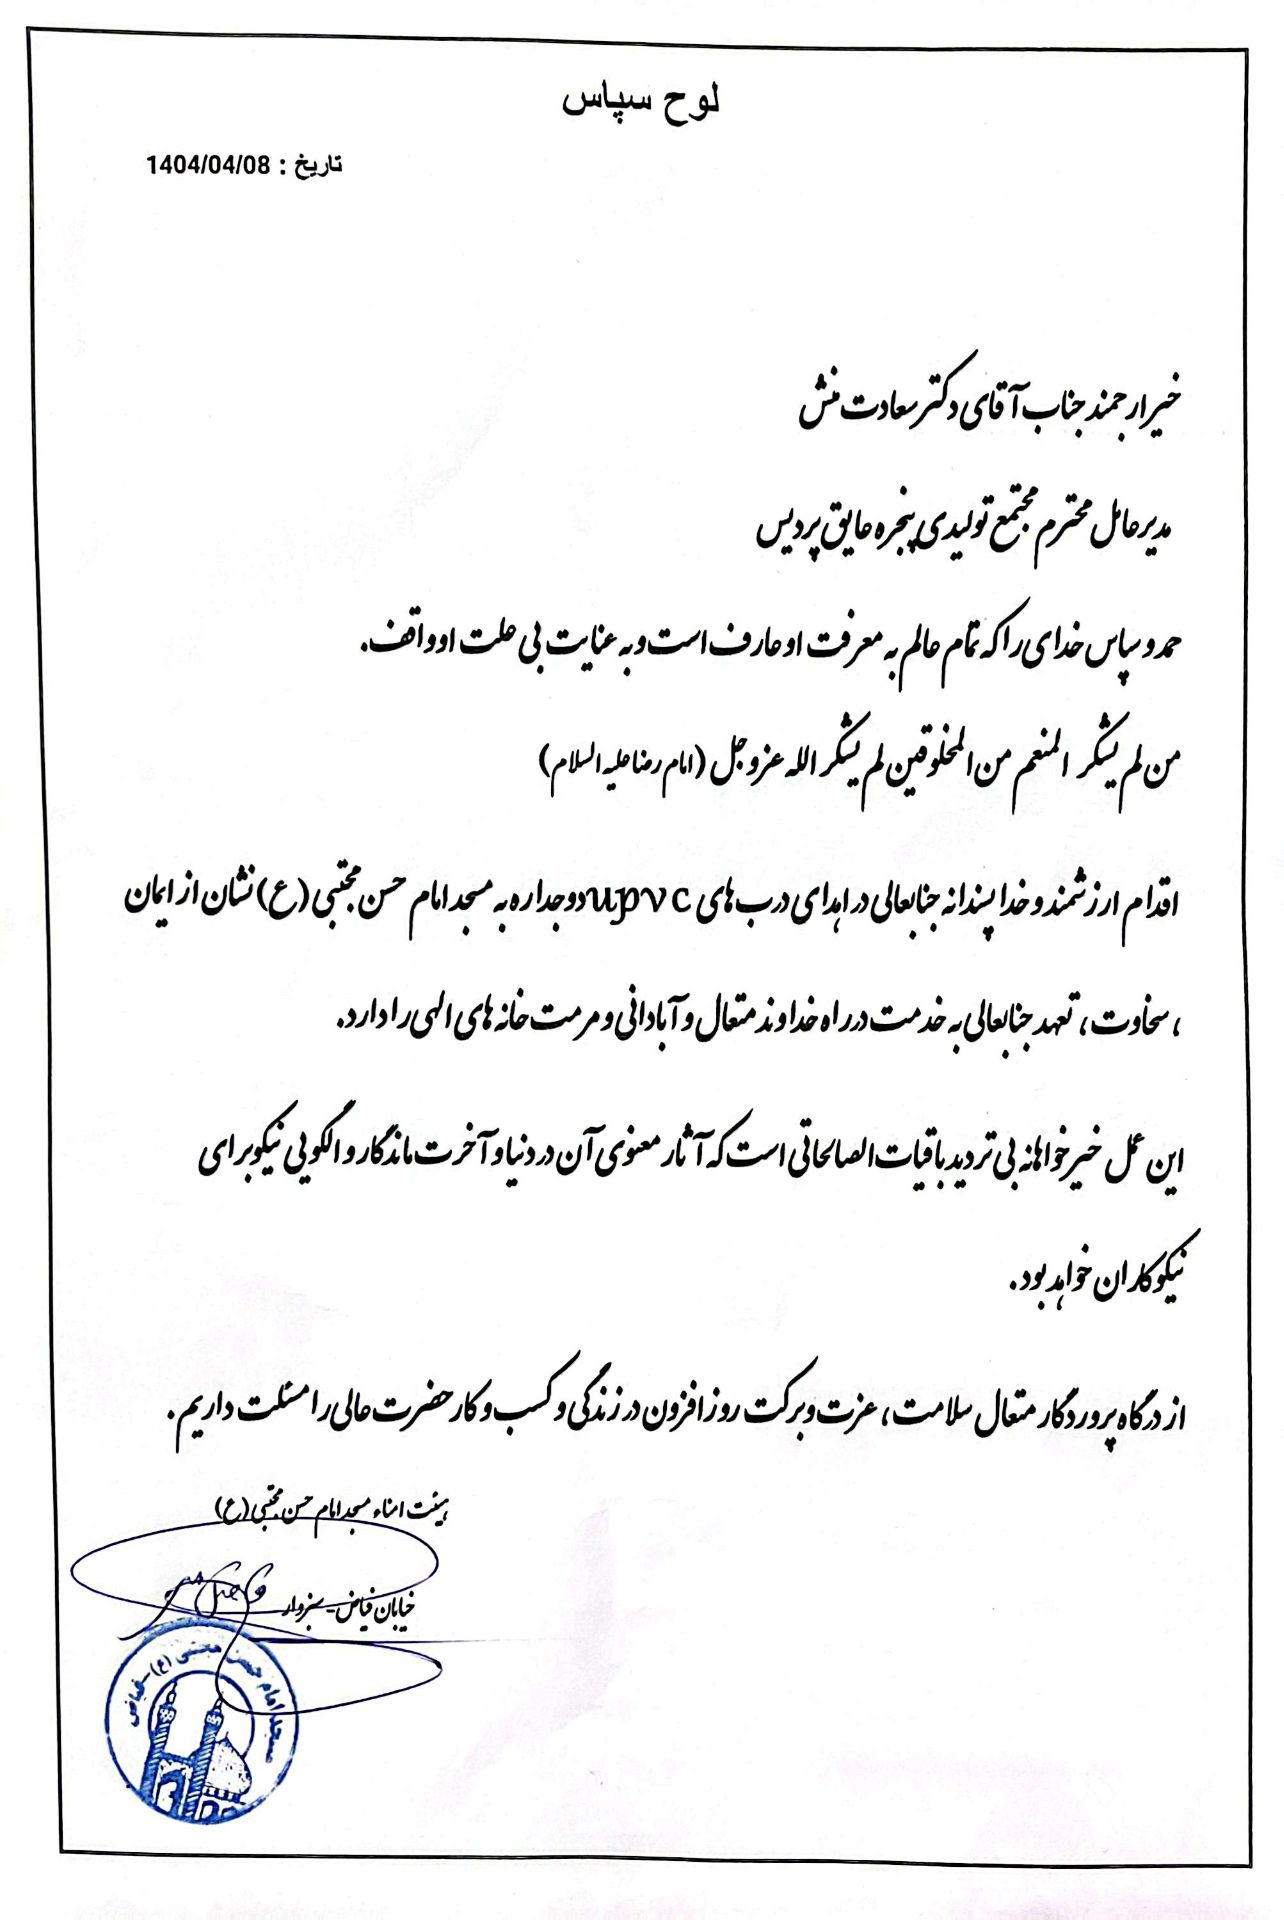 لوح سپاس
تاریخ : 1404/04/08
خیر ارجمند جناب آقای دکتر سعادت منش
مدیرعامل محترم مجتمع تولیدی پنجره عایق پردیس
حمد و سپاس خدای را که تمام عالم به معرفت او عارف است و به عنایت بی علت او واقف.
من لم یشکر المنعم من المخلوقین لم یشکر الله عزوجل (امام رضا علیه السلام)
اقدام ارزشمند و خداپسندانه جنابعالی در اهدای درب های upvc دوجداره به مسجد امام حسن مجتبی (ع) نشان از ایمان
، سخاوت، تعهد جنابعالی به خدمت در راه خداوند متعال و آبادانی و مرمت خانه های الهی را دارد.
این عمل خیرخواهانه بی تردید باقیات الصالحاتی است که آثار معنوی آن در دنیا و آخرت ماندگار و الگویی نیکو برای
نیکوکاران خواهد بود.
از درگاه پروردگار متعال سلامت، عزت و برکت روز افزون در زندگی و کسب و کار حضرت عالی را مسئلت داریم.
هیئت امناء مسجد امام حسن مجتبی (ع)
خیابان فیاض - سبزوار
مسجد امام حسن مجتبی (ع) - فیاض